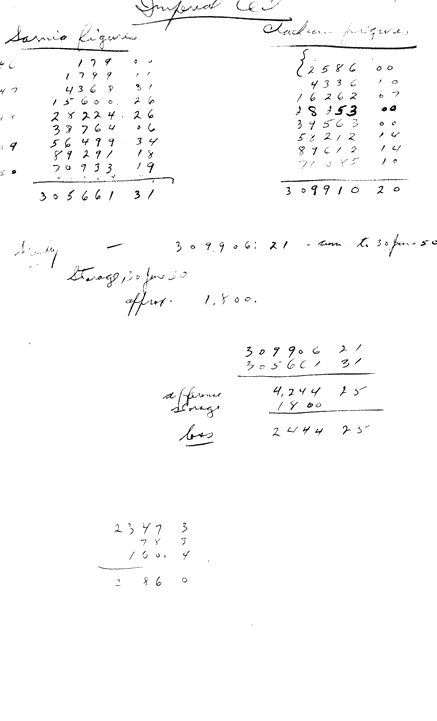 Imperial
Sarnia figures
figures
179 00
1799 11
4368 31
15600. 26
28224. 26
38764 06
56499 34
89291 18
70933 19
305661 31
2586 00
4336 10
16262 07
00
39563 00
58212 14
89612 14
71085 10
309910 20
— 309,906: 21
to 30 June 50
Storage, 30 June 50
approx. 1,800.
309906 21
305661 31
difference 4,244 25
storage 1800
loss 2444 25
2347 3
78 3
160. 4